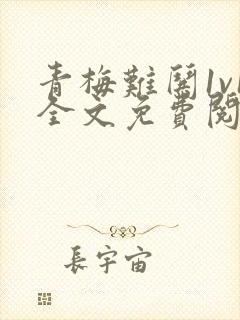 青梅難闖1v1
全文免費閱
長宇宙